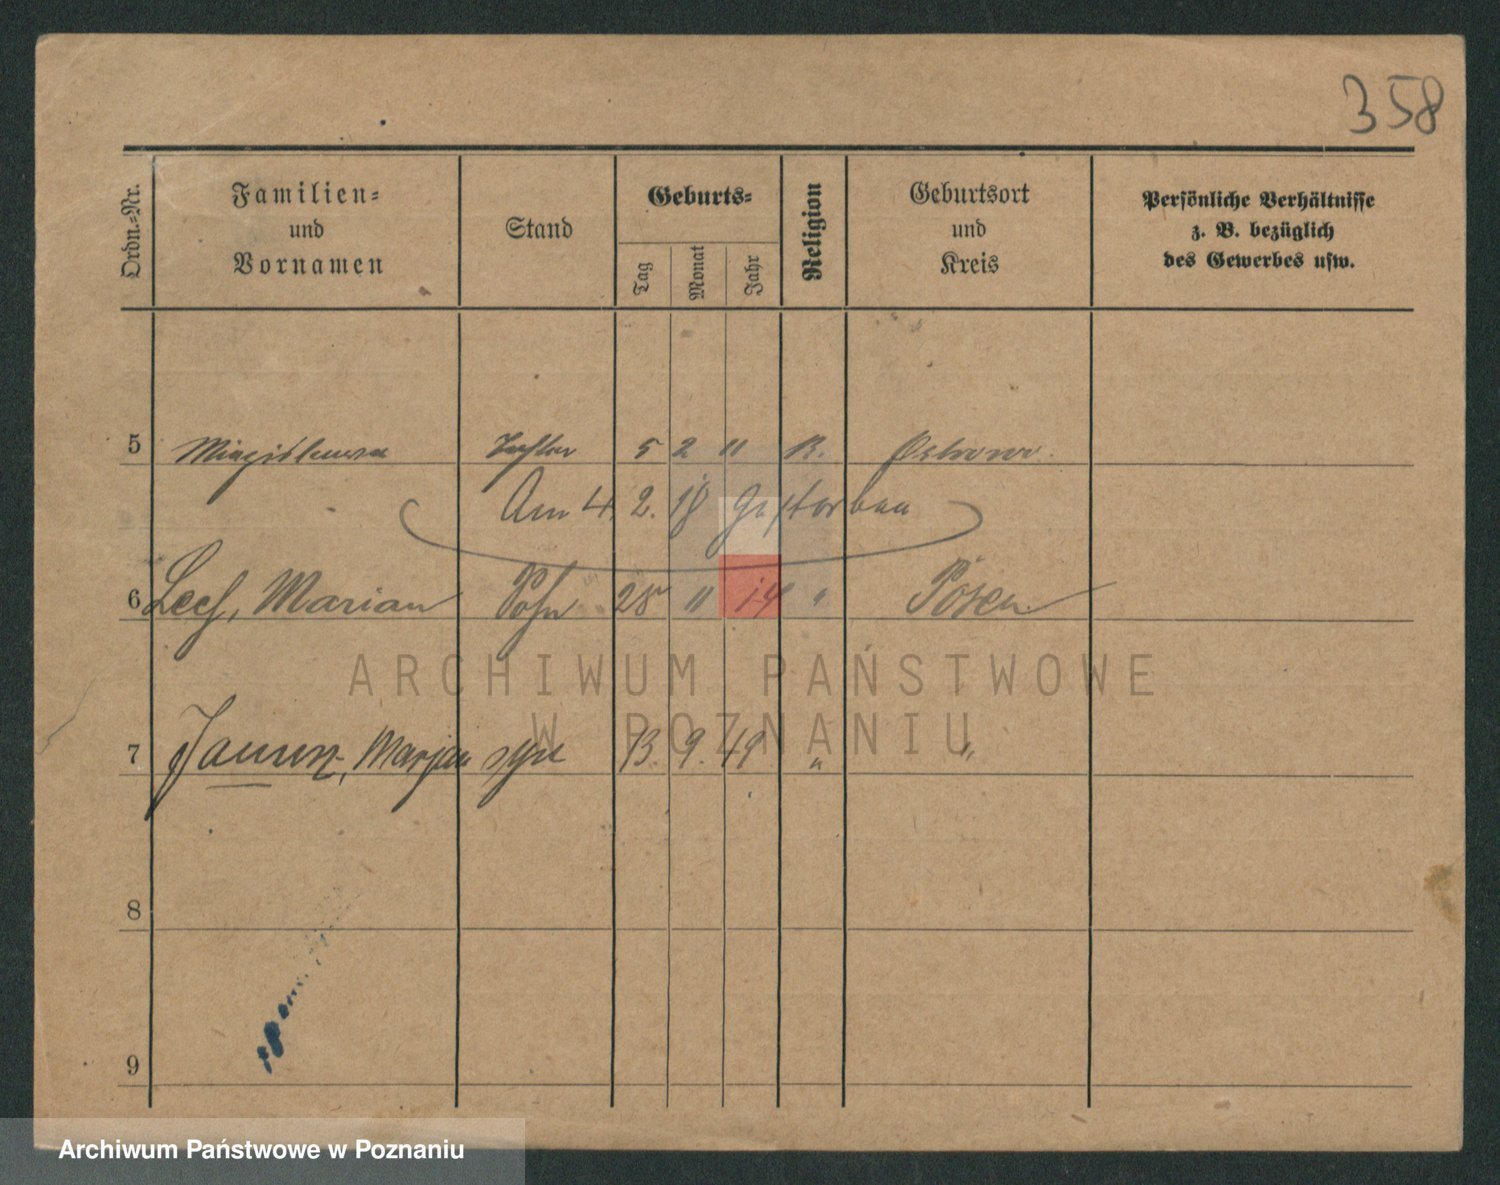 358
Ordn.-Nr.
Familien-
und
Vornamen
Stand
Geburts-
Tag
Monat
Jahr
Religion
Geburtsort
und
Kreis
Persönliche Verhältnisse
z. B. bezüglich
des Gewerbes usw.
5 Tochter 5 2 " R. Ostrowo.
Am 4. 2. 18 Gestorben
6 Lech, Marian Sohn 25 " 14 " Posen
ARCHIWUM PAŃSTWOWE
W POZNANIU
7 Marjan syn 13. 9. 19 " "
8
9
Archiwum Państwowe w Poznaniu